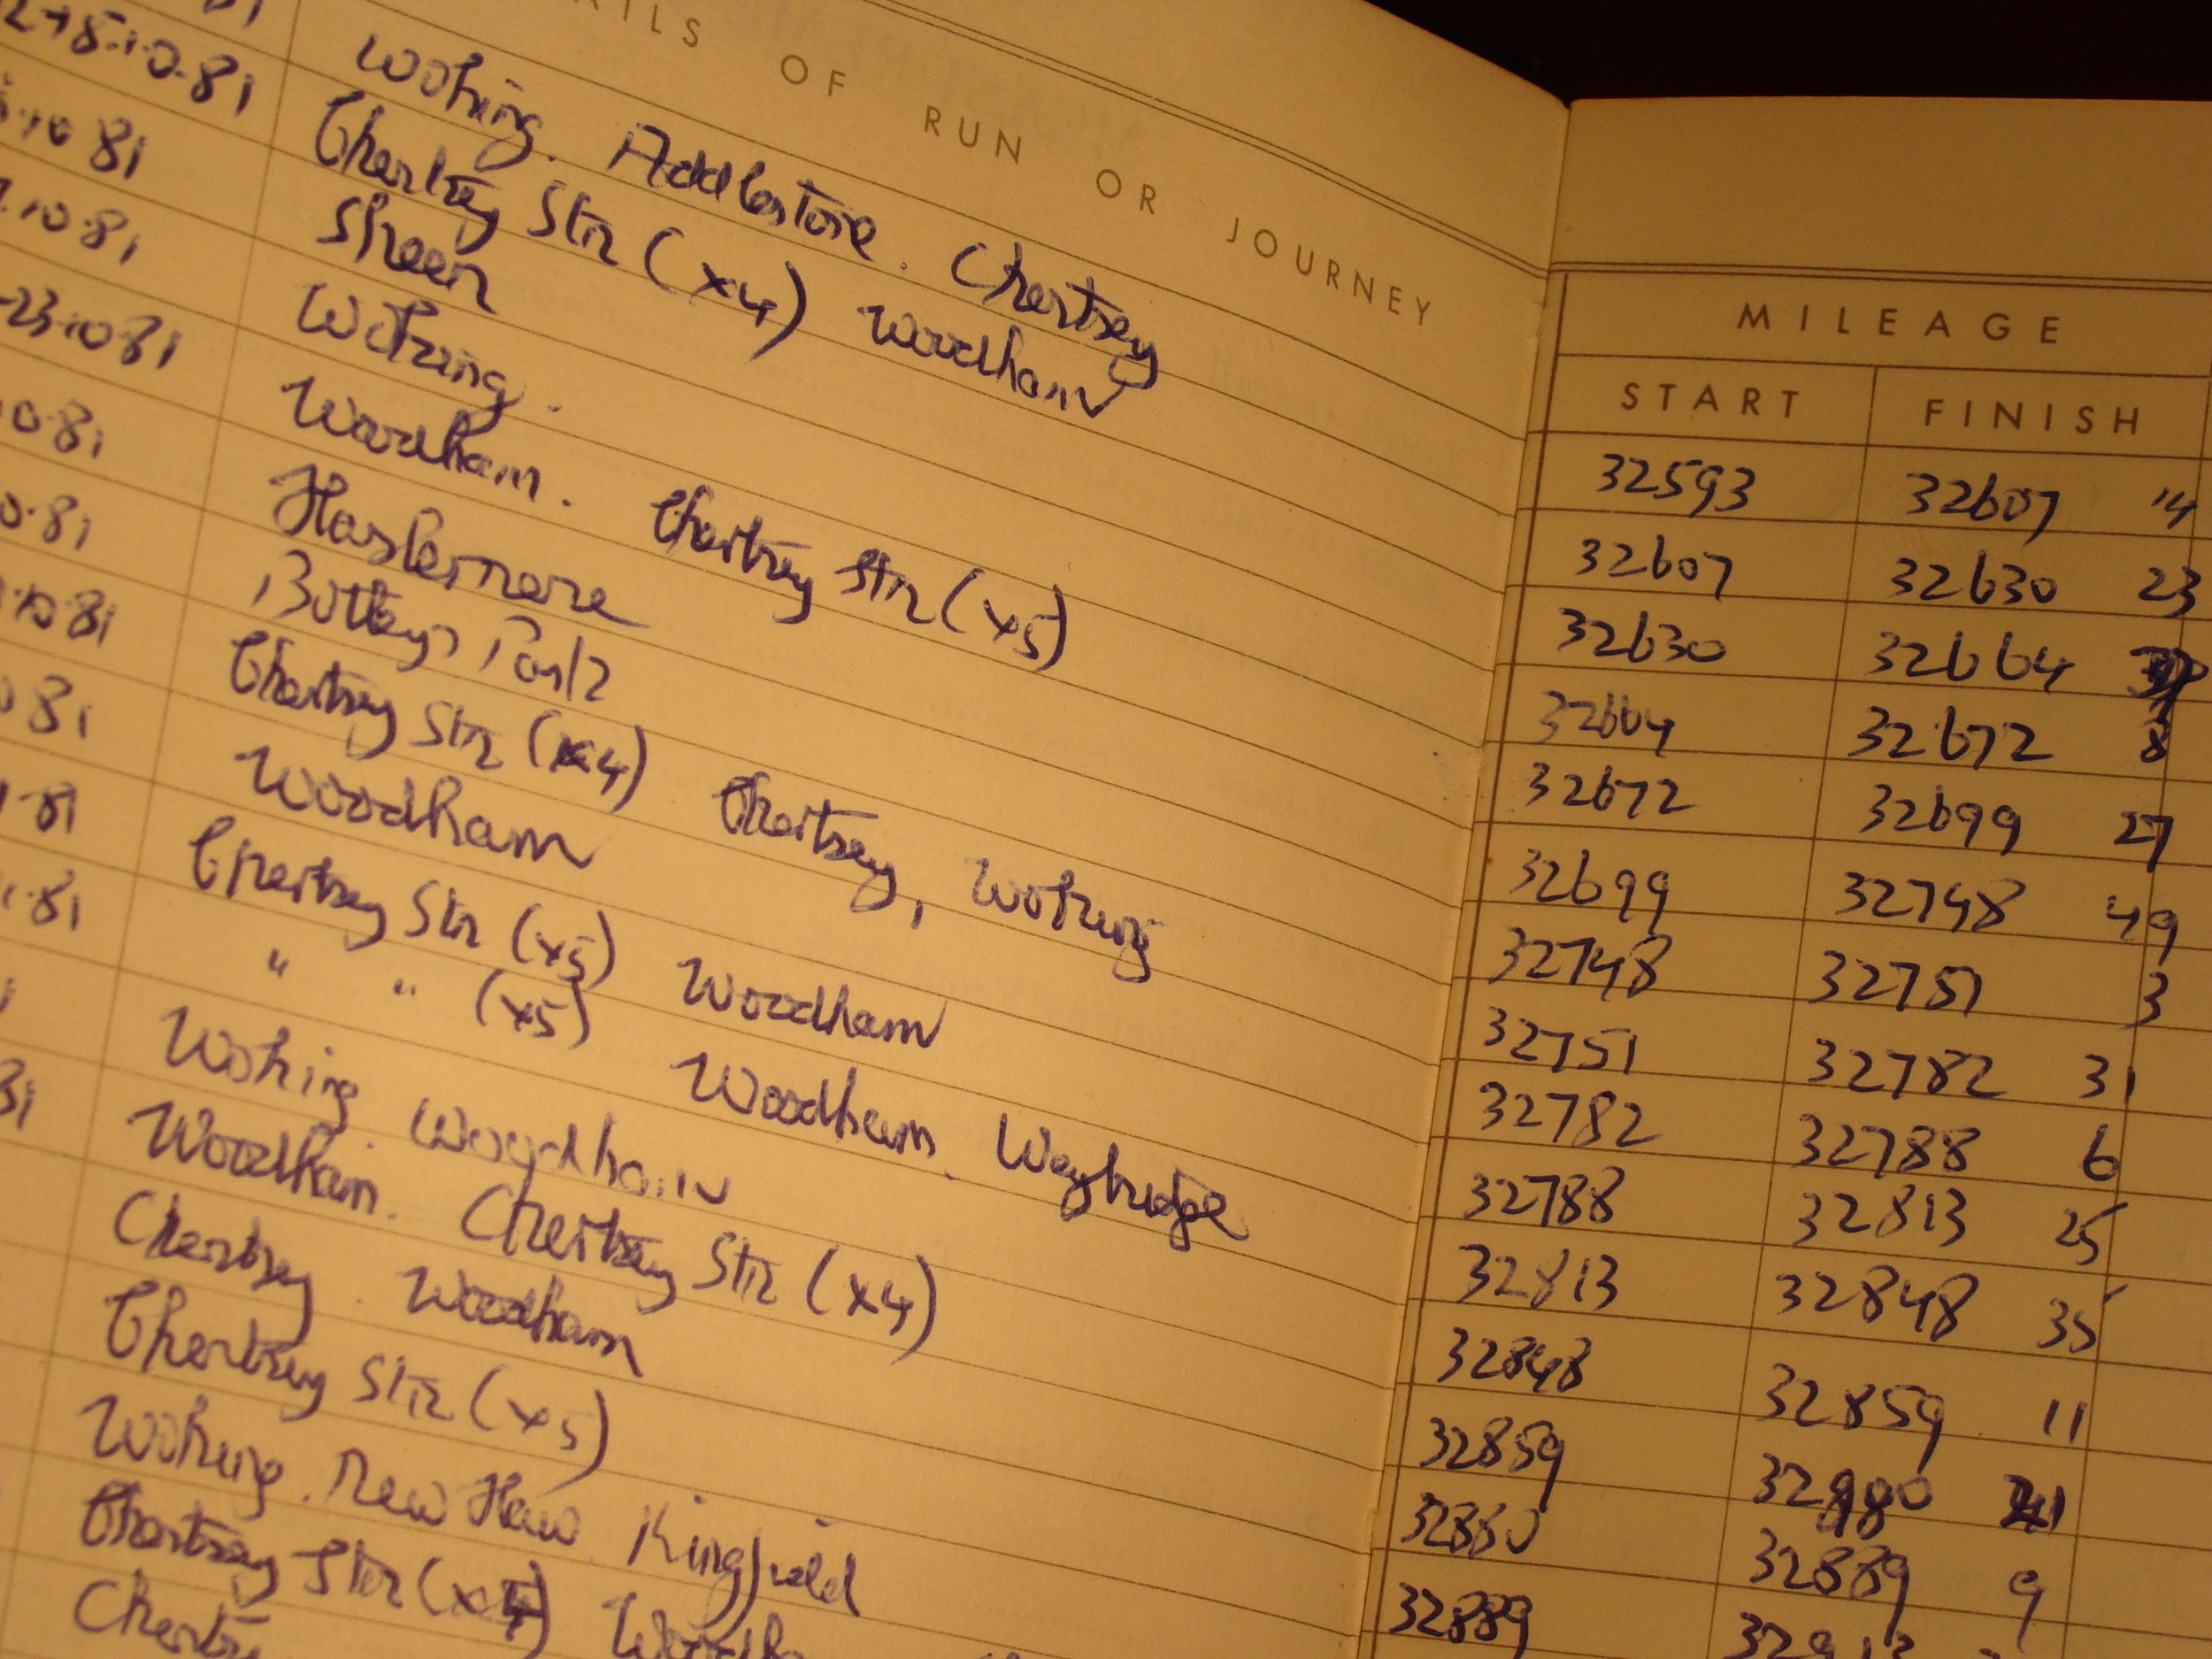 OF RUN OR JOURNEY
10.81 Woking. Addlestone. Chertsey
10.81 Chertsey Stn (x4) Woodham
10.81 Sheen
-23.10.81 Woking.
Woodham. Chertsey Stn (x5)
Haslemere
Botleys Park
Chertsey Stn (x4) Chertsey, Woking
Woodham
Chertsey Stn (x5) Woodham
" " (x5) Woodham. Weybridge
Woking. Woodham
Woodham. Chertsey Stn (x4)
Chertsey. Woodham
Chertsey Stn (x5)
Woking. New Haw. Kingfield
Chertsey Stn
MILEAGE
START FINISH
32593 32607 14
32607 32630 23
32630 32664
32664 32672 8
32672 32699 27
32699 32748 49
32748 32751 3
32751 32782 31
32782 32788 6
32788 32813 25
32813 32848 35
32848 32859 11
32859 21
32880 32889 9
32889